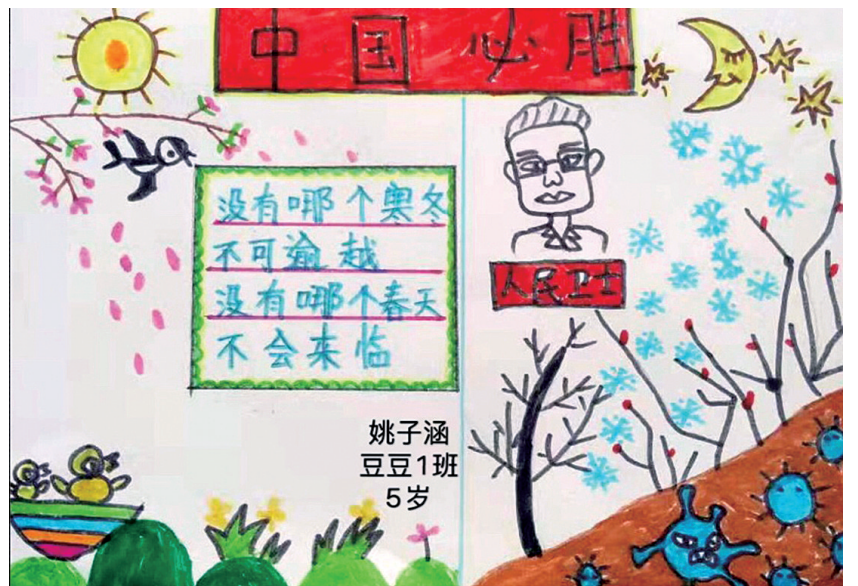 中国必胜
没有哪个寒冬
不可逾越
没有哪个春天
不会来临
人民卫士
姚子涵
豆豆1班
5岁